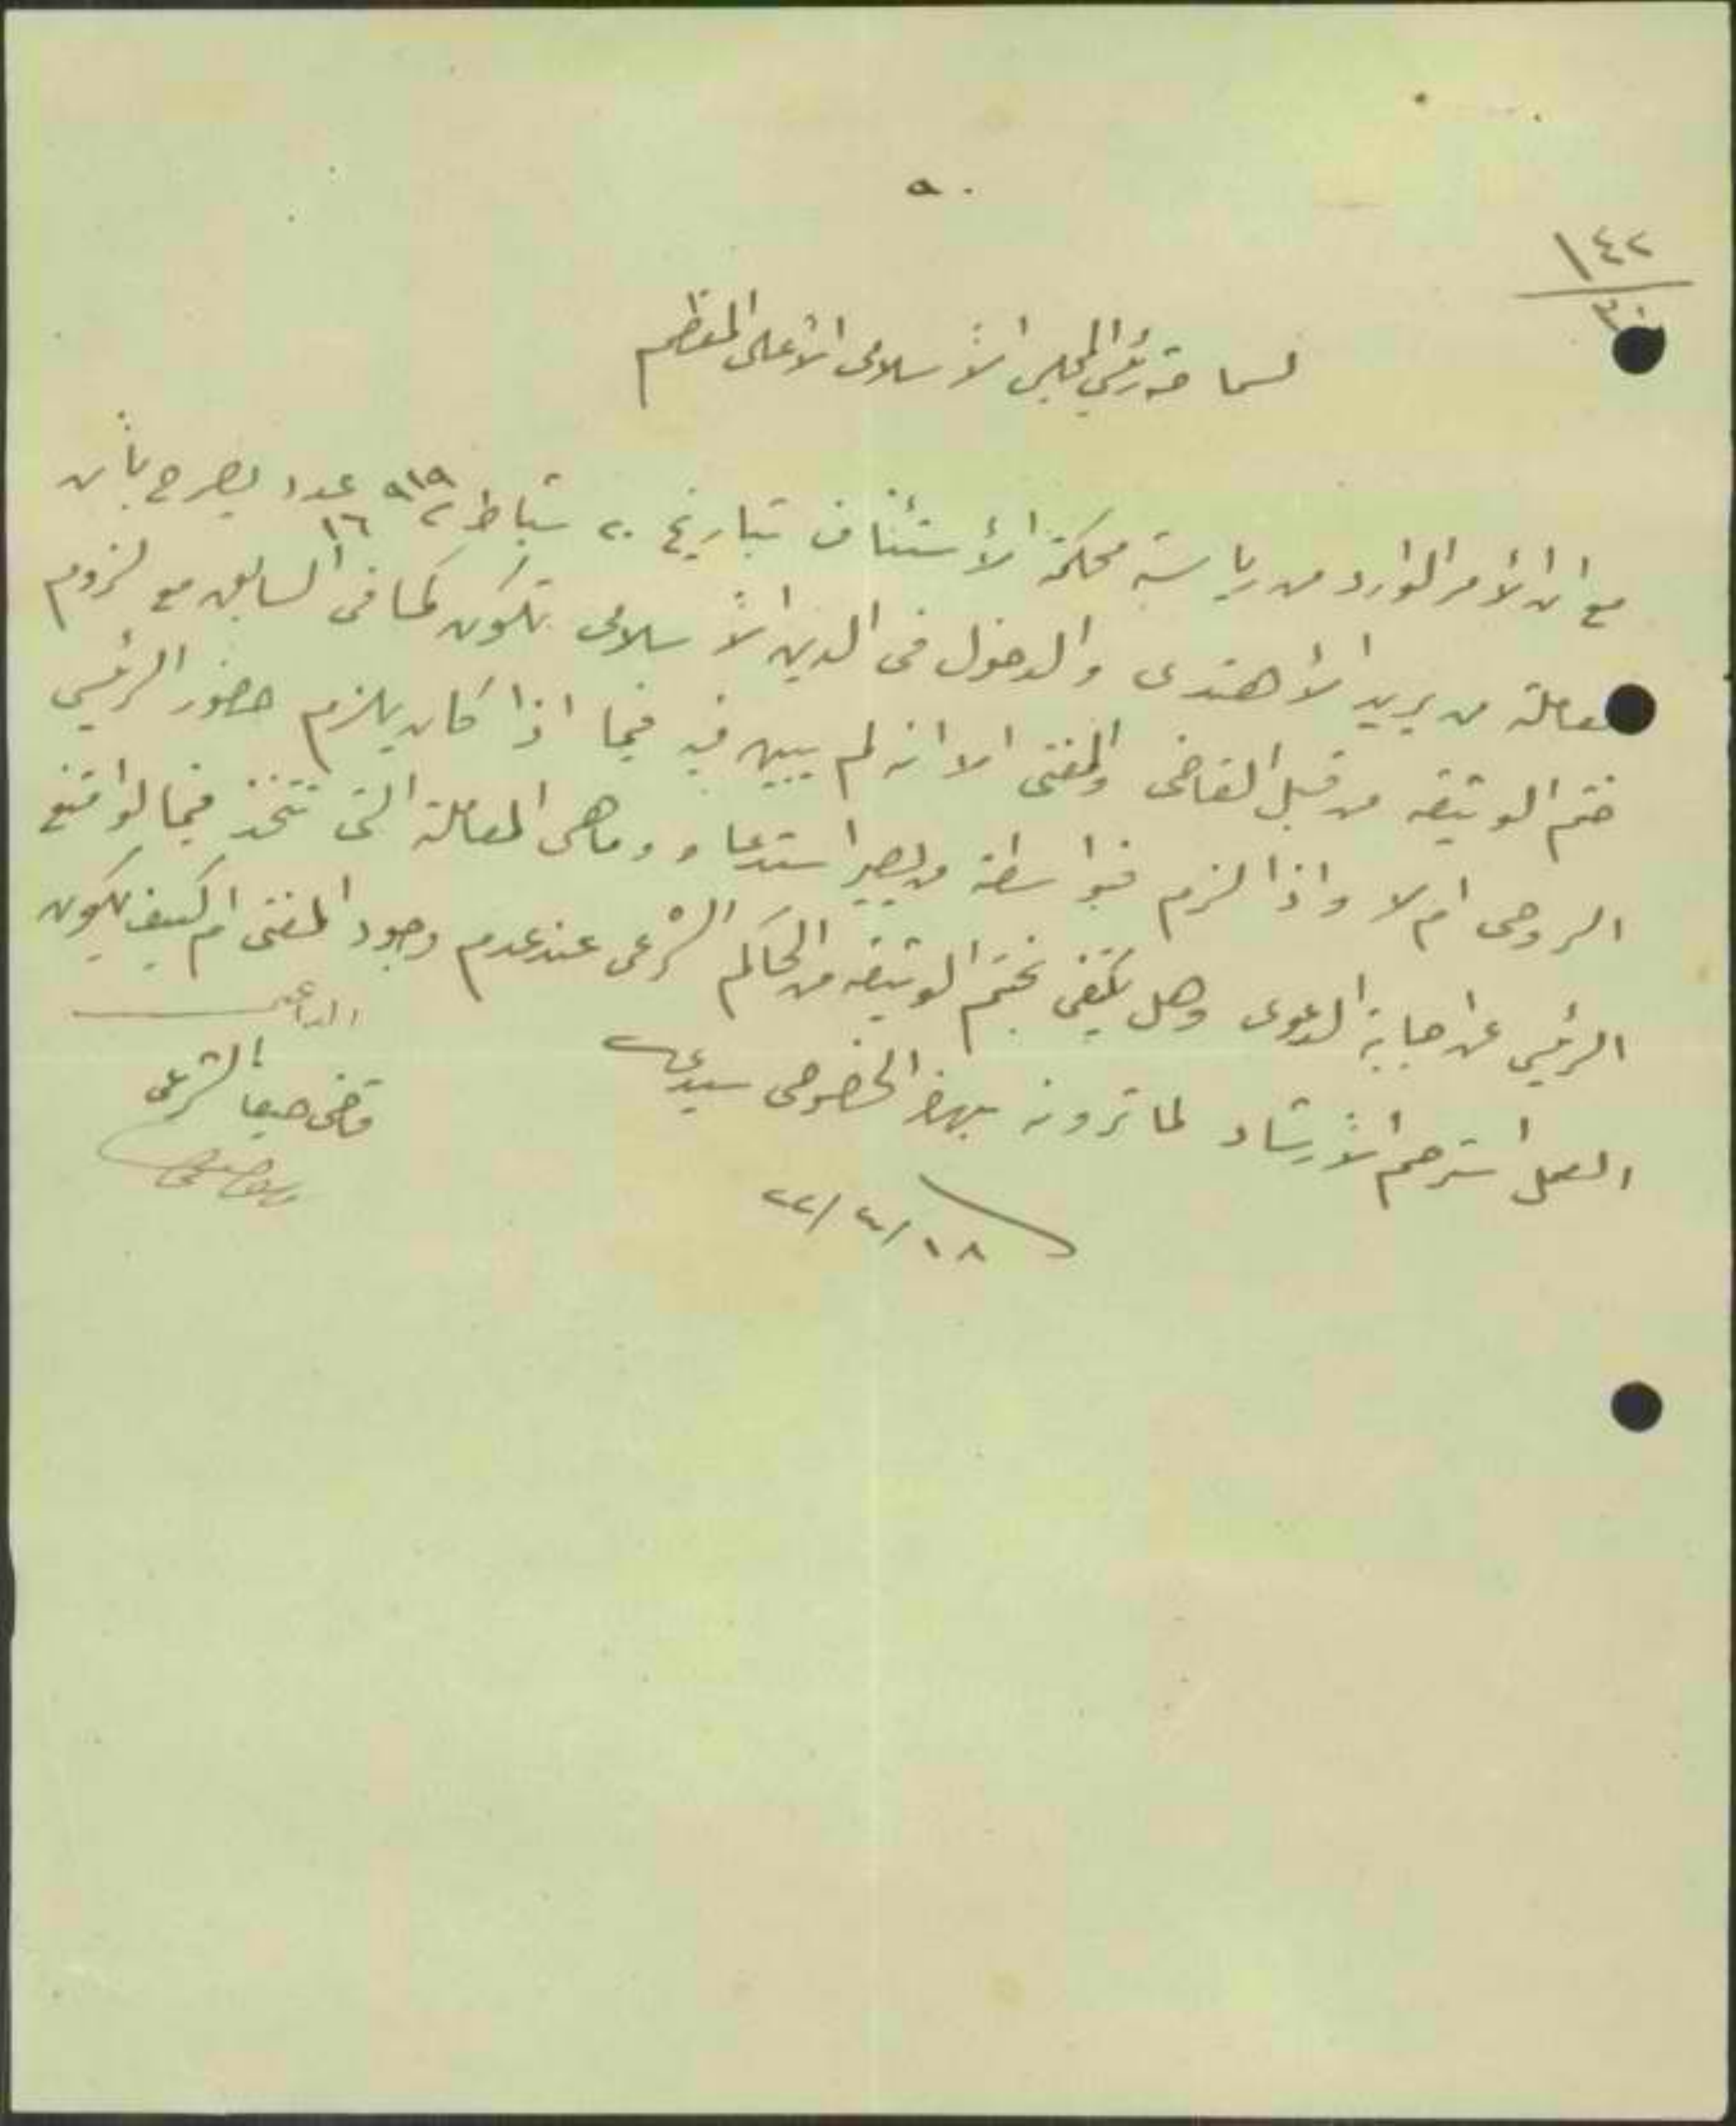 ١٤٢
لسماحة رئيس المجلس الأسلامى الأعلى المعظم
مع ان الأمر الوارد من رياسة محكمة الأستئناف بتاريخ ٢٠ شباط ٩١٩ عدد ١٦ يصرح بأن
معاملة من يريد الأهتدى والدخول فى الدين الأسلامى تكون كما فى السابق مع لزوم
ختم الوثيقه من قبل القاضى والمفتى الا انه لم يبين فيه فيما اذا كان يلزم حضور الرئيس
الروحى ام لا واذا لزم فبواسطة من يصير استدعاؤه وما هى المعاملة التى تتخذ فيما لو امتنع
الرئيس عن اجابة الدعوى وهل يكتفى بختم الوثيقه من الحاكم الشرعى عند عدم وجود المفتى ام كيف يكون
العمل استرحم الأرشاد لما ترونه بهذا الخصوص سيدى
١٨/٣/٢٢
الداعى
قاضى حيفا الشرعى